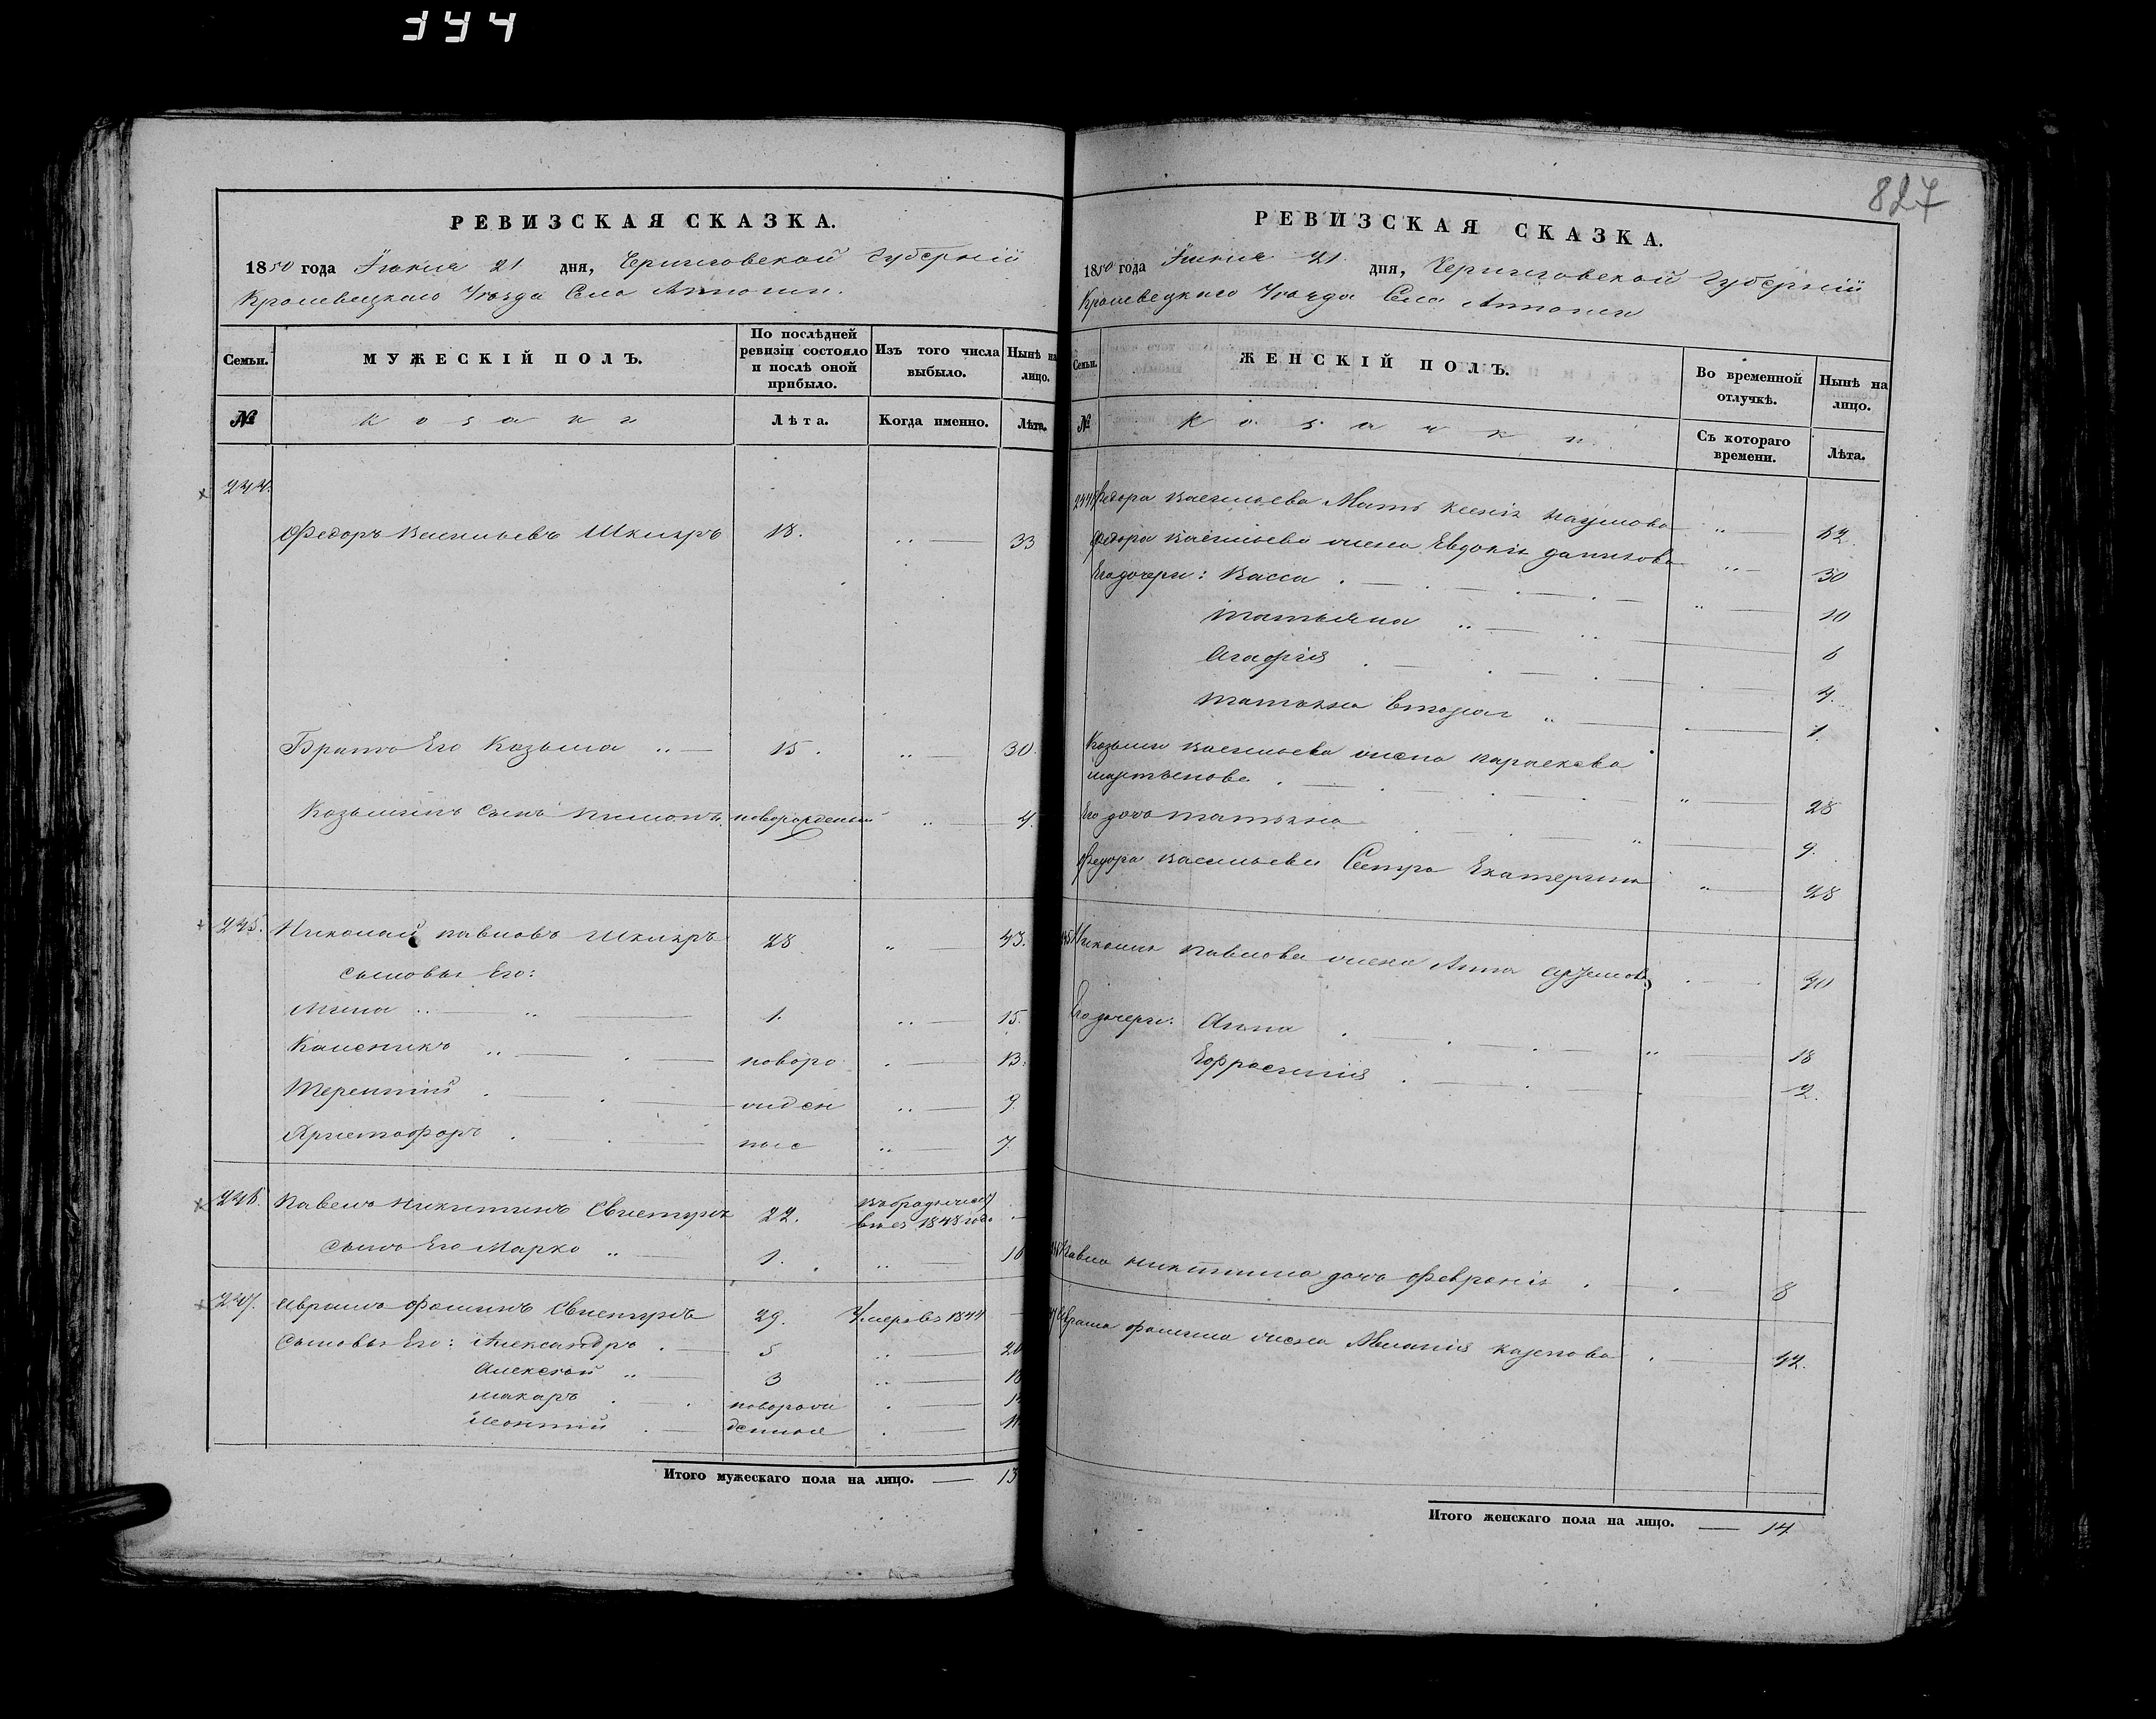 344
827
РЕВИЗСКАЯ СКАЗКА.
1850 года Іюня 21 дня, Черниговской Губерніи
Кролевецкаго Уѣзда Села
Семьи.
МУЖЕСКІЙ ПОЛЪ.
По послѣдней ревизіи состояло и послѣ оной прибыло.
Изъ того числа выбыло.
Нынѣ на лицо.
№
Козаки
Лѣта.
Когда именно.
Лѣта.
244.
Федоръ Васильевъ Шкляръ 18. 33
Братъ Его Козьма 15. 30.
Козьминъ Сынъ Пимонъ новорожденный 4.
245. Николай Павловъ Шкляръ 28 43.
Сыновья Его:
Мина 1. 15.
Каленикъ новоро 13.
Терентій жден 9.
Христофоръ ные 7.
246. Павелъ Никитинъ 22. 1848
Сынъ Его Марко 1. 16
247. Аврамъ Фоминъ 29. Умеръ въ 1844
Сыновья Его: Александръ 5 20
Алексѣй 3 18
Макаръ новорож
Леонтій денные 11
Итого мужескаго пола на лицо. 13
РЕВИЗСКАЯ СКАЗКА.
1850 года Іюня 21 дня, Черниговской Губерніи
Кролевецкаго Уѣзда Села
Семьи.
ЖЕНСКІЙ ПОЛЪ.
Во временной отлучкѣ.
Нынѣ на лицо.
№
Козачки
Съ котораго времени.
Лѣта.
244 Федора Васильева Мать Ксенія Наумова
Федора Васильева жена Евдокія Данилова 30
Его дочери: Васса 10
Татьяна 6
Агафія 4.
Татьяна вторая 1.
Козьмы Васильева жена Параскева
Мартынова 28
Его дочь Татьяна 9.
Федора Васильева Сестра Екатерина 28
245 Николая Павлова жена Анна
Его дочери: Анна 18
Ефросинія 2.
246 Павла Никитина дочь Февронія 8
247 Аврама Фомина жена Меланія Карпова 42.
Итого женскаго пола на лицо. 14